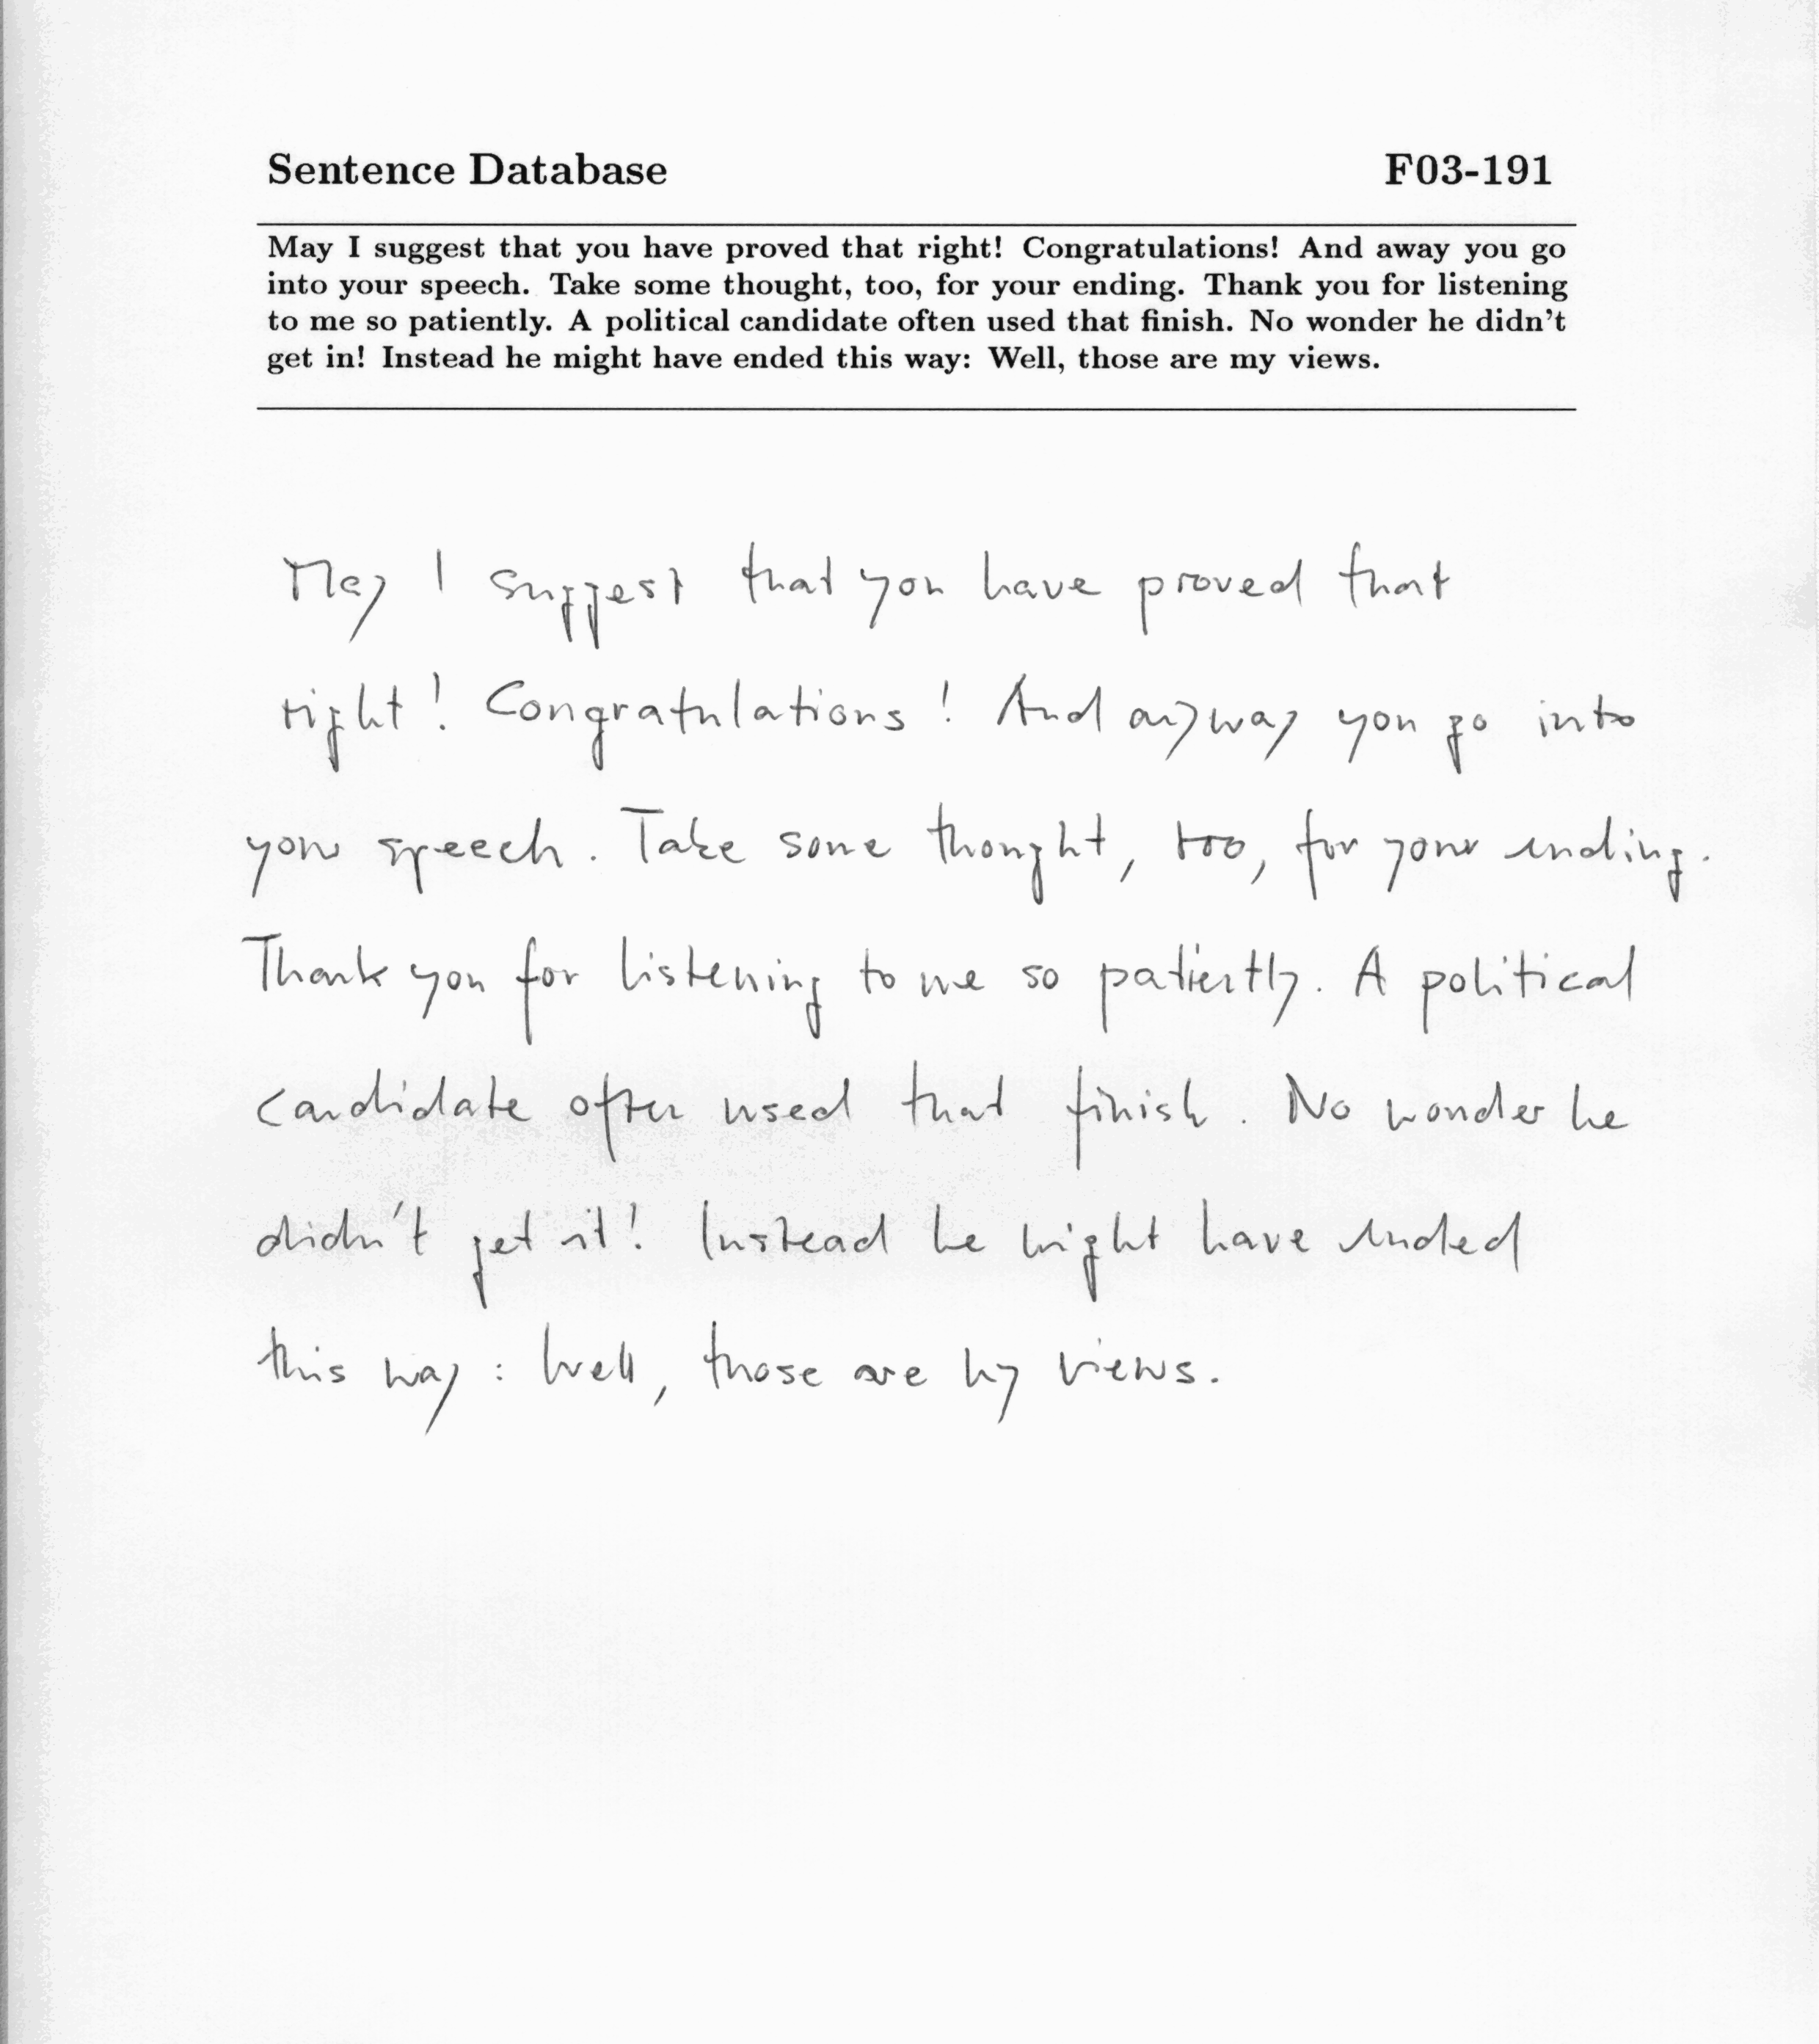 Sentence Database F03-191
May I suggest that you have proved that right! Congratulations! And away you go
into your speech. Take some thought, too, for your ending. Thank you for listening
to me so patiently. A political candidate often used that finish. No wonder he didn't
get in! Instead he might have ended this way: Well, those are my views.
May I suggest that you have proved that
right! Congratulations! And anyway you go into
your speech. Take some thought, too, for your ending.
Thank you for listening to me so patiently. A political
candidate often used that finish. No wonder he
didn't get it! Instead he might have ended
this way: Well, those are my views.